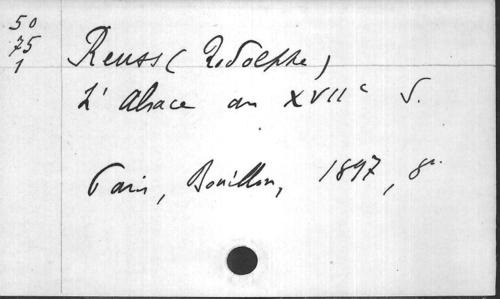 50
75
1
Reuss (Rodolphe)
L'Alsace au XVIIe S.
Paris, Bouillon, 1897, 8º.